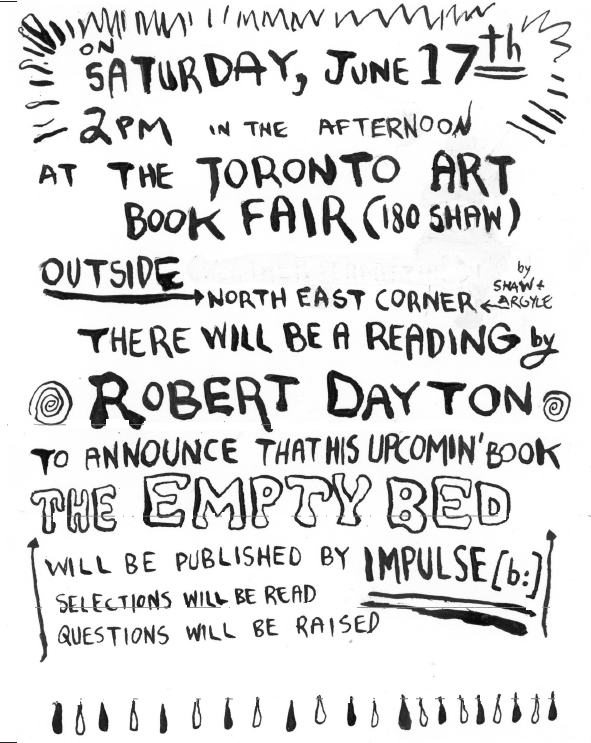 ON
SATURDAY, JUNE 17th
2PM IN THE AFTERNOON
AT THE TORONTO ART
BOOK FAIR (180 SHAW)
OUTSIDE
NORTH EAST CORNER
by
SHAW +
ARGYLE
THERE WILL BE A READING by
ROBERT DAYTON
TO ANNOUNCE THAT HIS UPCOMIN' BOOK
THE EMPTY BED
WILL BE PUBLISHED BY IMPULSE [b:]
SELECTIONS WILL BE READ
QUESTIONS WILL BE RAISED